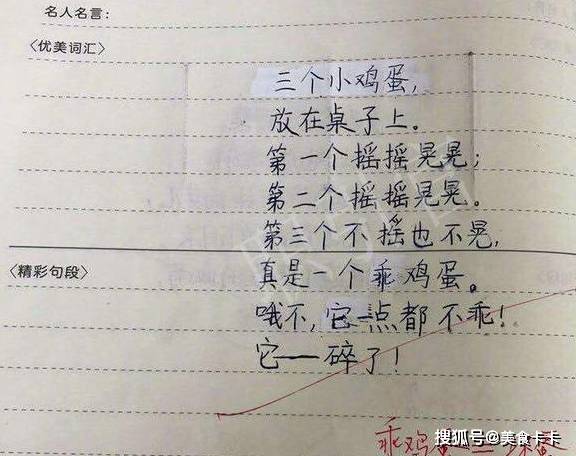 名人名言:
〈优美词汇〉
三个小鸡蛋,
放在桌子上。
第一个摇摇晃晃;
第二个摇摇晃晃。
第三个不摇也不晃,
〈精彩句段〉
真是一个乖鸡蛋。
哦不,它一点都不乖!
它——碎了!
乖鸡蛋
搜狐号@美食卡卡